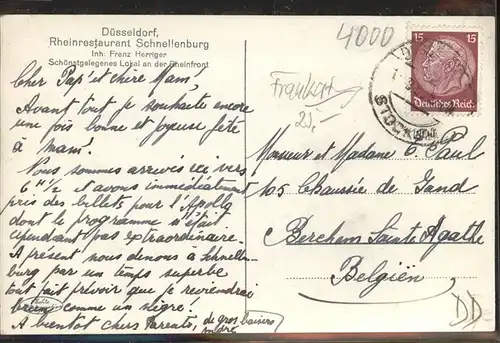 Düsseldorf,
Rheinrestaurant Schnellenburg
Inh. Franz Herriger
Schönstgelegenes Lokal an der Rheinfront
Cher Pap' et chère Mam'
Avant tout je souhaite encore
une fois bonne et joyeuse fête
à mam'.
Nous sommes arrivés ici vers
6 H ½ et avons immédiatement
pris des billets pour l'Apollo
dont le programme n'était
cependant pas extraordinaire.
A présent nous dînons à Schnellen-
burg par un temps superbe
tout fait prévoir que je reviendrai
comme un nègre!
A bientôt chers Parents, de gros baisers
4000
Frankert
25,-
15 15
Deutsches Reich
STOCKUM
Monsieur et Madame C. Paul
105 Chaussée de Gand
Berchem Sainte Agathe
Belgiën
DD